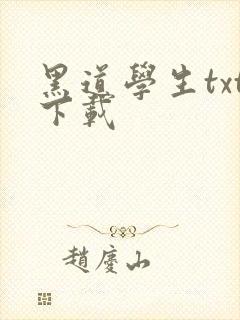 黑道學生txt
下載
趙慶山